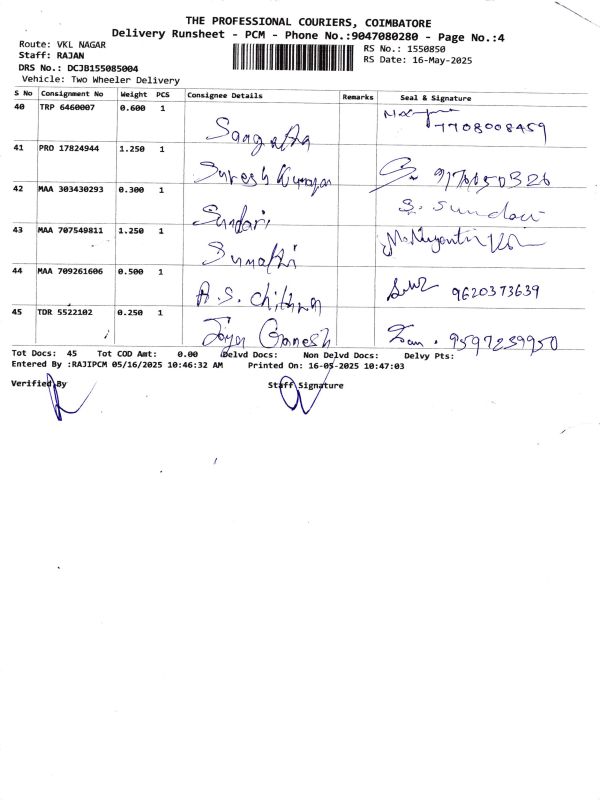 THE PROFESSIONAL COURIERS, COIMBATORE
Delivery Runsheet - PCM - Phone No.:9047080280 - Page No.:4
Route: VKL NAGAR
RS No.: 1550850
Staff: RAJAN
RS Date: 16-May-2025
DRS No.: DCJB155085004
Vehicle: Two Wheeler Delivery
S No Consignment No Weight PCS Consignee Details Remarks Seal & Signature
40 TRP 6460007 0.600 1
7708008459
41 PRO 17824944 1.250 1
Suresh Kumar
42 MAA 303430293 0.300 1
Sundari S. Sundari
43 MAA 707549811 1.250 1
Sumathi
44 MAA 709261606 0.500 1
A.S. Chithra 9620373639
45 TDR 5522102 0.250 1
Jaya Ganesh 9597239950
Tot Docs: 45 Tot COD Amt: 0.00 Delvd Docs: Non Delvd Docs: Delvy Pts:
Entered By :RAJIPCM 05/16/2025 10:46:32 AM Printed On: 16-05-2025 10:47:03
Verified By Staff Signature